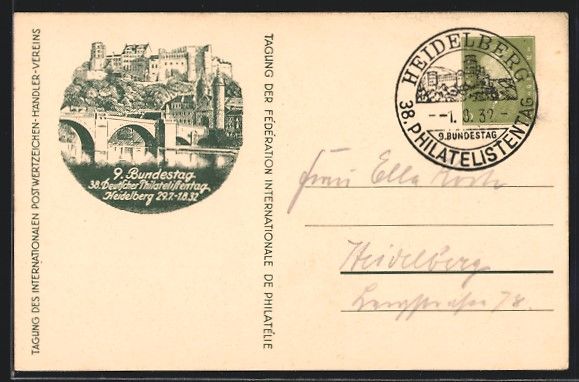 TAGUNG DES INTERNATIONALEN POSTWERTZEICHEN-HÄNDLER-VEREINS
9. Bundestag
38. Deutscher Philatelistentag
Heidelberg 29.7.-1.8.32
TAGUNG DER FÉDÉRATION INTERNATIONALE DE PHILATÉLIE
HEIDELBERG
--1. 8. 32 -
9. BUNDESTAG
38. PHILATELISTENTAG
Frau Ella
Heidelberg
78.